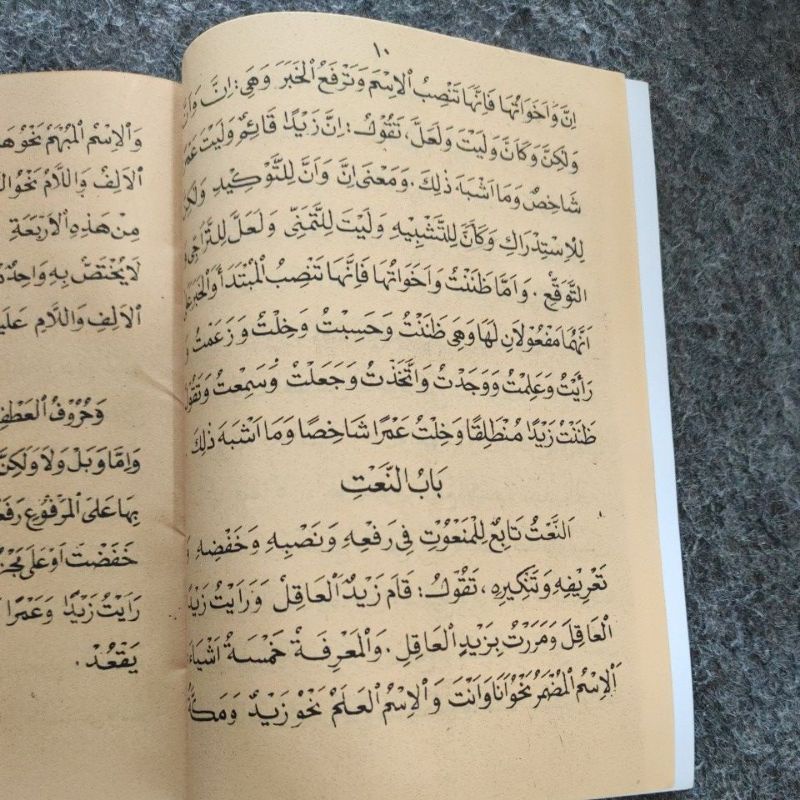 ١٠
اِنَّ وَاَخَوَاتُهَا فَاِنَّهَا تَنْصِبُ الْاِسْمَ وَتَرْفَعُ الْخَبَرَ وَهِيَ : اِنَّ وَاَنَّ
وَلٰكِنَّ وَكَاَنَّ وَلَيْتَ وَلَعَلَّ، تَقُوْلُ : اِنَّ زَيْدًا قَائِمٌ وَلَيْتَ عَمْرًا
شَاخِصٌ وَمَا اَشْبَهَ ذٰلِكَ . وَمَعْنَى اِنَّ وَاَنَّ لِلتَّوْكِيْدِ وَلٰكِنَّ
لِلْاِسْتِدْرَاكِ وَكَاَنَّ لِلتَّشْبِيْهِ وَلَيْتَ لِلتَّمَنِّى وَلَعَلَّ لِلتَّرَاجِّى
التَّوَقُّعِ . وَاَمَّا ظَنَنْتُ وَاَخَوَاتُهَا فَاِنَّهَا تَنْصِبُ الْمُبْتَدَأَ وَالْخَبَرَ عَلَى
اَنَّهُمَا مَفْعُوْلَانِ لَهَا وَهِيَ ظَنَنْتُ وَحَسِبْتُ وَخِلْتُ وَزَعَمْتُ
رَاَيْتُ وَعَلِمْتُ وَوَجَدْتُ وَاتَّخَذْتُ وَجَعَلْتُ وَسَمِعْتُ وَتَقُوْلُ
ظَنَنْتُ زَيْدًا مُنْطَلِقًا وَخِلْتُ عَمْرًا شَاخِصًا وَمَا اَشْبَهَ ذٰلِكَ
بَابُ النَّعْتِ
اَلنَّعْتُ تَابِعٌ لِلْمَنْعُوْتِ فِى رَفْعِهِ وَنَصْبِهِ وَخَفْضِهِ
تَعْرِيْفِهِ وَتَنْكِيْرِهِ، تَقُوْلُ : قَامَ زَيْدٌ الْعَاقِلُ وَرَاَيْتُ زَيْدًا
الْعَاقِلَ وَمَرَرْتُ بِزَيْدٍ الْعَاقِلِ . وَالْمَعْرِفَةُ خَمْسَةُ اَشْيَاءَ
اَلْاِسْمُ الْمُضْمَرُ نَحْوُ اَنَا وَاَنْتَ وَالْاِسْمُ الْعَلَمُ نَحْوُ زَيْدٌ وَمَكَّةُ
وَالْاِسْمُ الْمُبْهَمُ نَحْوُ
الْاَلِفُ وَاللَّامُ نَحْوُ
مِنْ هٰذِهِ الْاَرْبَعَةِ
لَا يَخْتَصُّ بِهِ وَاحِدٌ
الْاَلِفِ وَاللَّامِ عَلَيْهِ
وَحُرُوْفُ الْعَطْفِ
وَاِمَّا وَبَلْ وَلَا وَلٰكِنْ
بِهَا عَلَى الْمَرْفُوْعِ
خَفَضْتَ اَوْ عَلَى
رَاَيْتُ زَيْدًا وَعَمْرًا
يَقْعُدْ .